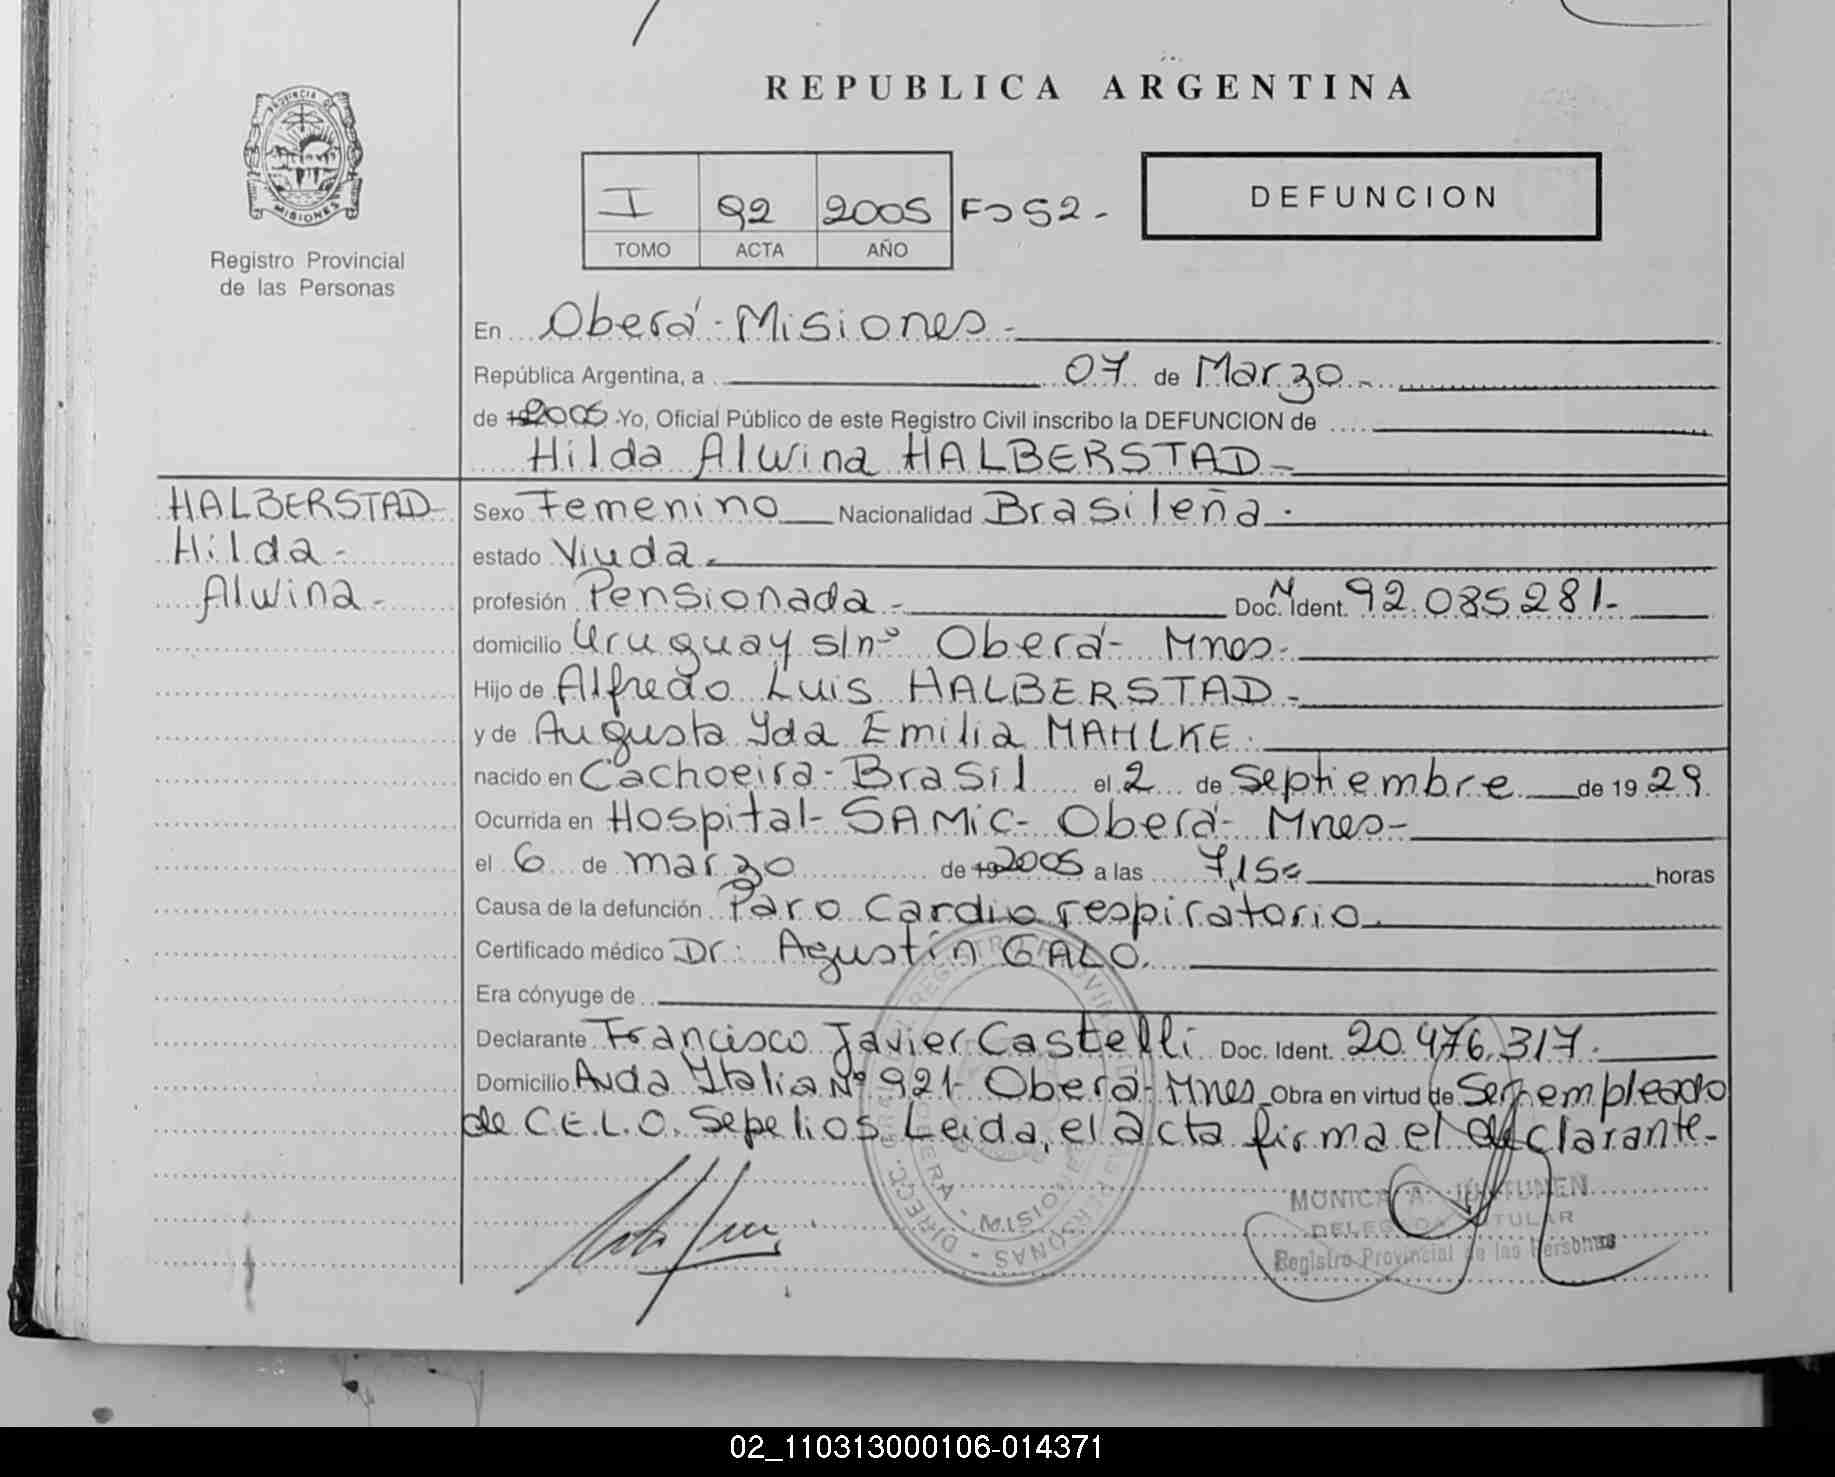 REPUBLICA ARGENTINA
PROVINCIA DE
MISIONES
Registro Provincial
de las Personas
I 92 2005 Fº 52-
TOMO ACTA AÑO
DEFUNCION
En Oberá - Misiones -
República Argentina, a 07 de Marzo -
de 19 2005 -Yo, Oficial Público de este Registro Civil inscribo la DEFUNCION de
Hilda Alwina HALBERSTAD -
HALBERSTAD
Hilda -
Alwina -
Sexo Femenino Nacionalidad Brasileña -
estado Viuda -
profesión Pensionada - Doc. N Ident. 92.085.281-
domicilio Uruguay s/nº Oberá - Mnes -
Hijo de Alfredo Luis HALBERSTAD -
y de Augusta Yda Emilia MAHLKE -
nacido en Cachoeira - Brasil el 2 de Septiembre de 19 29
Ocurrida en Hospital - SAMIC - Oberá - Mnes -
el 6 de marzo de 19 2005 a las 7,15 horas
Causa de la defunción Paro Cardio respiratorio.
Certificado médico Dr: Agustín GALO.
Era cónyuge de
Declarante Francisco Javier Castelli Doc. Ident. 20.476.317.
Domicilio Avda Ytalia Nº 921- Oberá - Mnes Obra en virtud de Ser empleado
de C.E.L.O. Sepelios Leida, el acta firma el declarante -
MONICA A.
DELEGADA TITULAR
Registro Provincial de las Personas
02_110313000106-014371